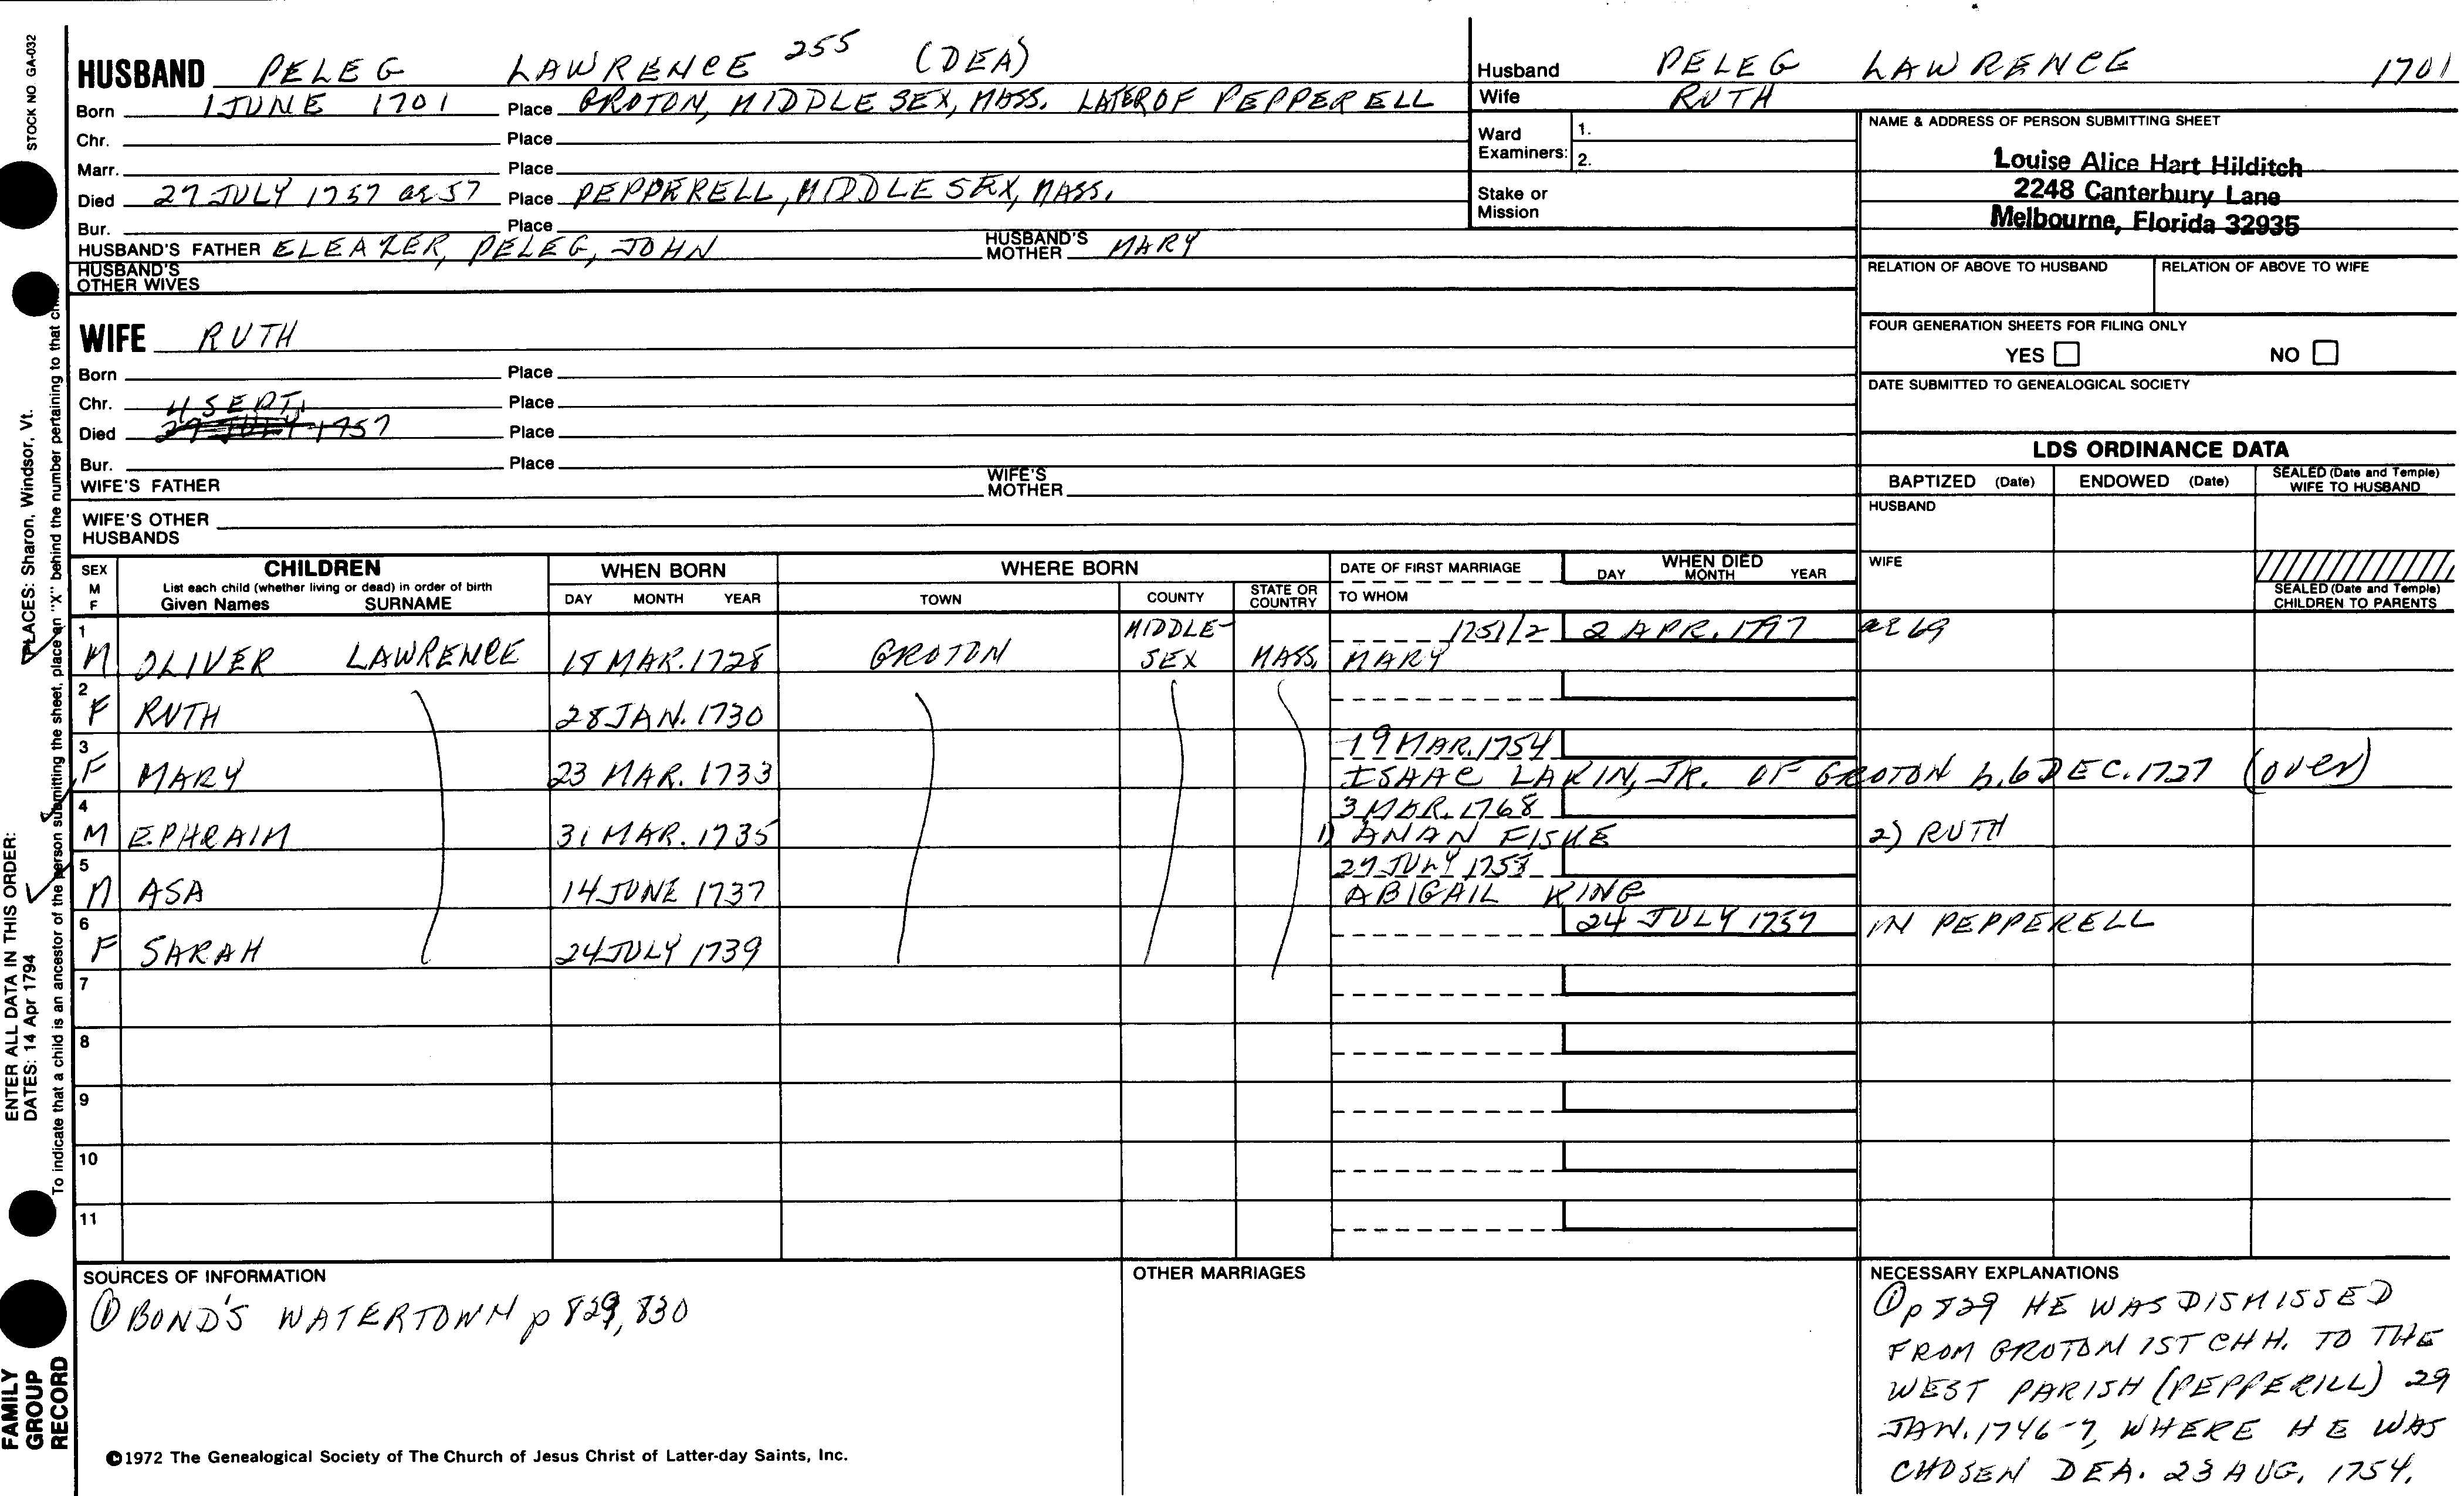 STOCK NO GA-032
HUSBAND PELEG LAWRENCE 255 (DEA)
Born 1 JUNE 1701 Place GROTON, MIDDLESEX, MASS. LATER OF PEPPERELL
Chr. Place
Marr. Place
Died 27 JULY 1757 ae 57 Place PEPPERELL, MIDDLESEX, MASS.
Bur. Place
HUSBAND'S FATHER ELEAZER, PELEG, JOHN HUSBAND'S MOTHER MARY
HUSBAND'S OTHER WIVES
Husband PELEG LAWRENCE 1701
Wife RUTH
Ward Examiners: 1.
2.
Stake or Mission
NAME & ADDRESS OF PERSON SUBMITTING SHEET
Louise Alice Hart Hilditch
2248 Canterbury Lane
Melbourne, Florida 32935
RELATION OF ABOVE TO HUSBAND RELATION OF ABOVE TO WIFE
FOUR GENERATION SHEETS FOR FILING ONLY
YES NO
DATE SUBMITTED TO GENEALOGICAL SOCIETY
WIFE RUTH
Born Place
Chr. Place
4 SEPT.
Died 29 JULY 1757 Place
Bur. Place
WIFE'S FATHER WIFE'S MOTHER
WIFE'S OTHER HUSBANDS
LDS ORDINANCE DATA
BAPTIZED (Date) ENDOWED (Date) SEALED (Date and Temple) WIFE TO HUSBAND
HUSBAND
WIFE
SEALED (Date and Temple) CHILDREN TO PARENTS
SEX M F CHILDREN WHEN BORN WHERE BORN DATE OF FIRST MARRIAGE WHEN DIED
List each child (whether living or dead) in order of birth
Given Names SURNAME DAY MONTH YEAR TOWN COUNTY STATE OR COUNTRY TO WHOM DAY MONTH YEAR
1 MIDDLE- 1751/2 2 APR. 1797 ae 69
M OLIVER LAWRENCE 15 MAR. 1728 GROTON SEX MASS. MARY
2
F RUTH 28 JAN. 1730
3 19 MAR. 1754
F MARY 23 MAR. 1733 ISAAC LAKIN, JR. OF GROTON b. 6 DEC. 1727 (over)
4 3 MAR. 1768
M EPHRAIM 31 MAR. 1735 1) ANAN FISKE 2) RUTH
5 27 JULY 1758
M ASA 14 JUNE 1737 ABIGAIL KING
6 24 JULY 1757 IN PEPPERELL
F SARAH 24 JULY 1739
7
8
9
10
11
SOURCES OF INFORMATION
① BOND'S WATERTOWN p 829, 830
OTHER MARRIAGES
NECESSARY EXPLANATIONS
① p 829 HE WAS DISMISSED
FROM GROTON 1ST CHH. TO THE
WEST PARISH (PEPPERILL) 29
JAN. 1746-7, WHERE HE WAS
CHOSEN DEA. 23 AUG. 1754.
©1972 The Genealogical Society of The Church of Jesus Christ of Latter-day Saints, Inc.
FAMILY GROUP RECORD
ENTER ALL DATA IN THIS ORDER:
DATES: 14 Apr 1794 PLACES: Sharon, Windsor, Vt.
To indicate that a child is an ancestor of the person submitting the sheet, place an "X" behind the number pertaining to that